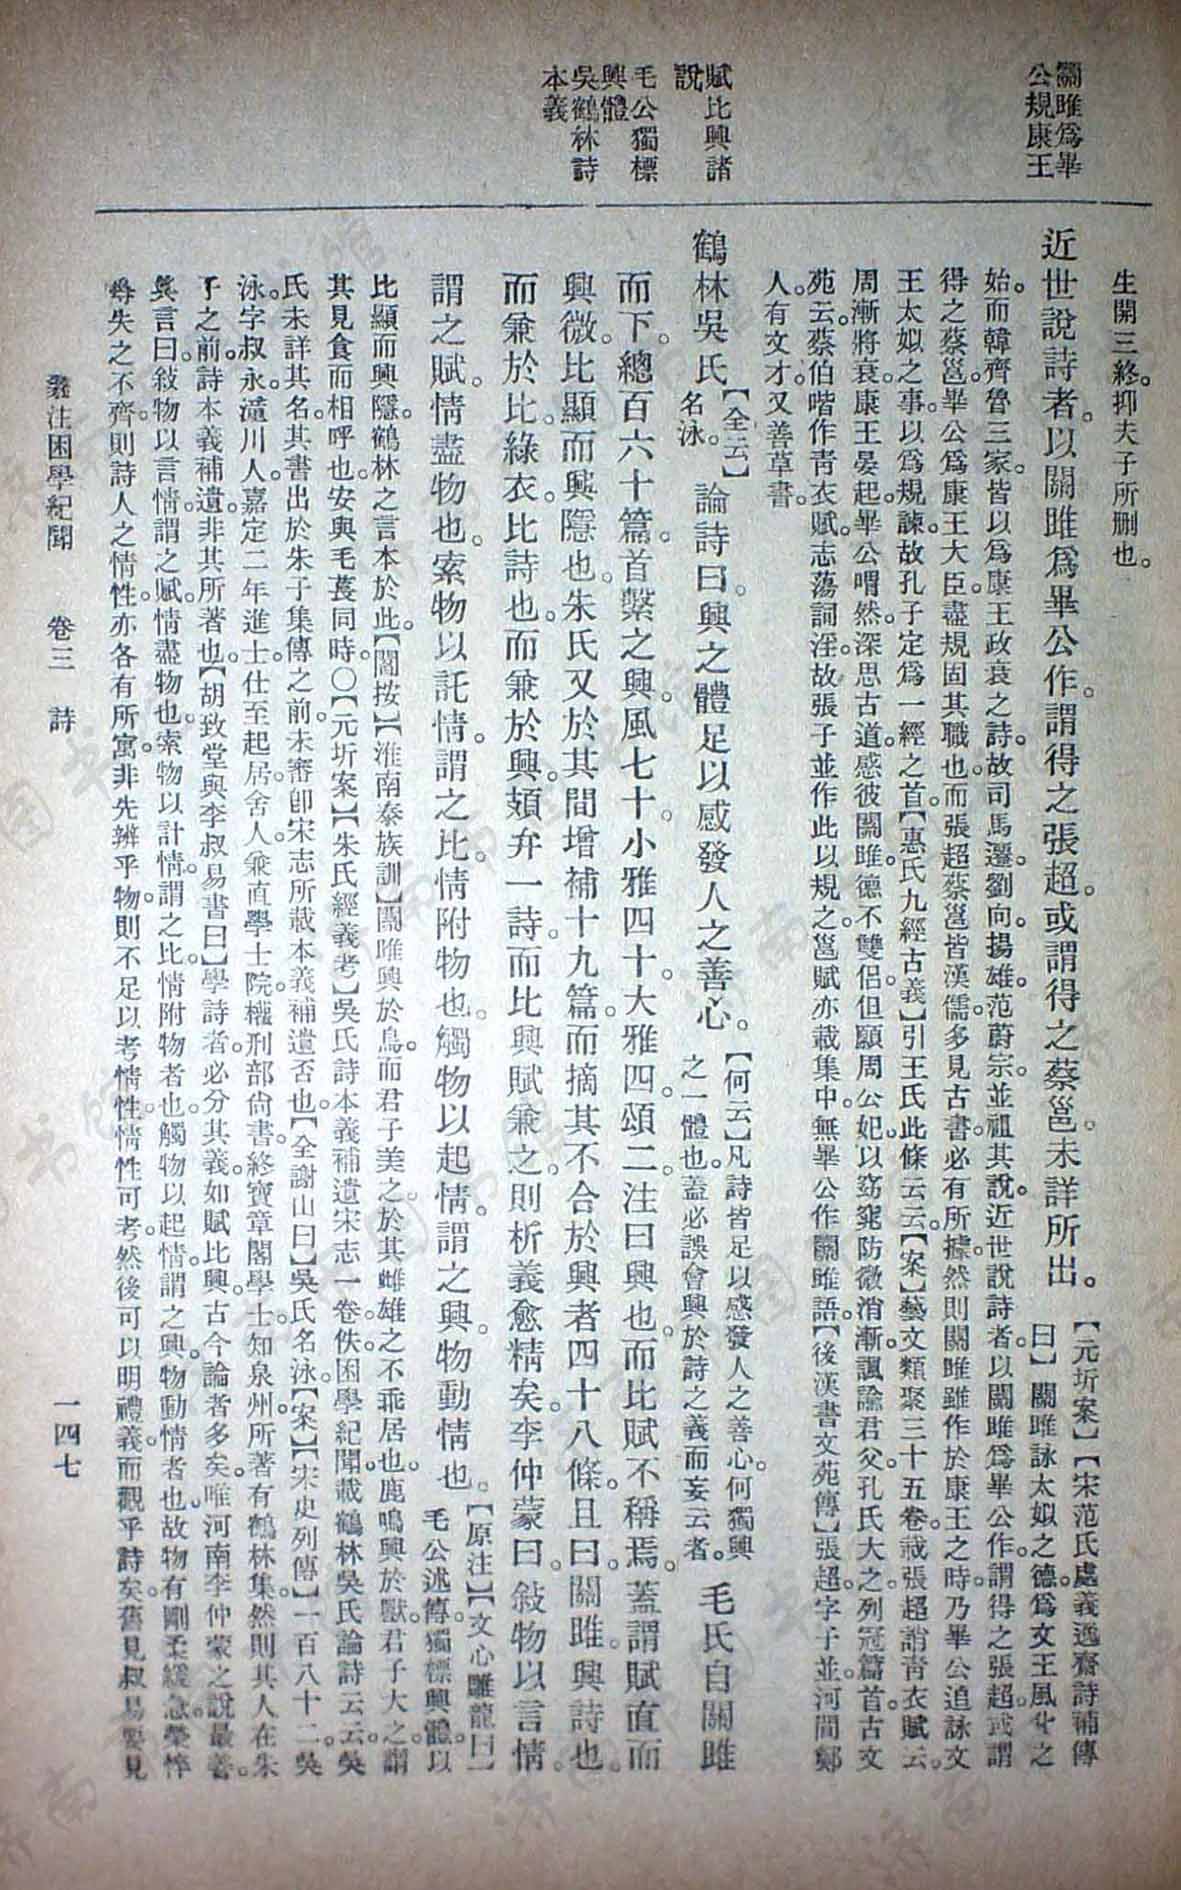 關雎爲畢
公規康王
賦比興諸
說
毛公獨標
興體
吳鶴林詩
本義
生開三終。抑夫子所删也。
近世說詩者。以關雎爲畢公作。謂得之張超。或謂得之蔡邕。未詳所出。
【元圻案】【宋范氏處義逸齋詩補傳
曰】關雎詠太姒之德。爲文王風化之
始。而韓齊魯三家。皆以爲康王政衰之詩。故司馬遷。劉向。揚雄。范蔚宗。並祖其說。近世說詩者。以關雎爲畢公作。謂得之張超。或謂
得之蔡邕。畢公爲康王大臣。盡規固其職也。而張超蔡邕皆漢儒。多見古書。必有所據。然則關雎雖作於康王之時。乃畢公追詠文
王太姒之事。以爲規諫。故孔子定爲一經之首。【惠氏九經古義】引王氏此條云云。【案】藝文類聚三十五卷。載張超誚青衣賦云。
周漸將衰。康王晏起。畢公喟然。深思古道。感彼關雎。德不雙侶。但願周公妃。以窈窕防微消漸。諷諭君父。孔氏大之。列冠篇首。古文
苑云。蔡伯喈作青衣賦。志蕩詞淫。故張子並作此以規之。邕賦亦載集中。無畢公作關雎語。【後漢書文苑傳】張超。字子並。河間鄚
人。有文才。又善草書。
鶴林吳氏
【全云】
名泳。
論詩曰。興之體足以感發人之善心。
【何云】凡詩皆足以感發人之善心。何獨興
之一體也。蓋必誤會興於詩之義而妄云者。
毛氏自關雎
而下。總百六十篇。首繫之興。風七十。小雅四十。大雅四。頌二。注曰興也。而比賦不稱焉。蓋謂賦直而
興微。比顯而興隱也。朱氏又於其間增補十九篇。而摘其不合於興者四十八條。且曰。關雎。興詩也。
而兼於比。綠衣。比詩也。而兼於興。頍弁一詩。而比興賦兼之。則析義愈精矣。李仲蒙曰。敍物以言情。
謂之賦。情盡物也。索物以託情。謂之比。情附物也。觸物以起情。謂之興。物動情也。
【原注】【文心雕龍曰】
毛公述傳。獨標興體。以
比顯而興隱。鶴林之言本於此。【閻按】【淮南泰族訓】關雎興於鳥。而君子美之。於其雌雄之不乖居也。鹿鳴興於獸。君子大之。謂
其見食而相呼也。安與毛萇同時。〇【元圻案】【朱氏經義考】吳氏詩本義補遺宋志一卷。佚。困學紀聞載鶴林吳氏論詩云云。吳
氏未詳其名。其書出於朱子集傳之前。未審卽宋志所載本義補遺否也。【全謝山曰】吳氏名泳。【案】【宋史列傳】一百八十二。吳
泳。字叔永。潼川人。嘉定二年進士。仕至起居舍人。兼直學士院。權刑部尙書。終寶章閣學士。知泉州。所著有鶴林集。然則其人在朱
子之前。詩本義補遺。非其所著也。【胡致堂與李叔易書曰】學詩者。必分其義。如賦比興。古今論者多矣。唯河南李仲蒙之說最善。
其言曰。敍物以言情。謂之賦。情盡物也。索物以計情。謂之比。情附物者也。觸物以起情。謂之興。物動情者也。故物有剛柔緩急。榮悴
得失之不齊。則詩人之情性。亦各有所寓。非先辨乎物。則不足以考情性。情性可考。然後可以明禮義而觀乎詩矣。舊見叔易要見
翁注困學紀聞　卷三　詩
一四七